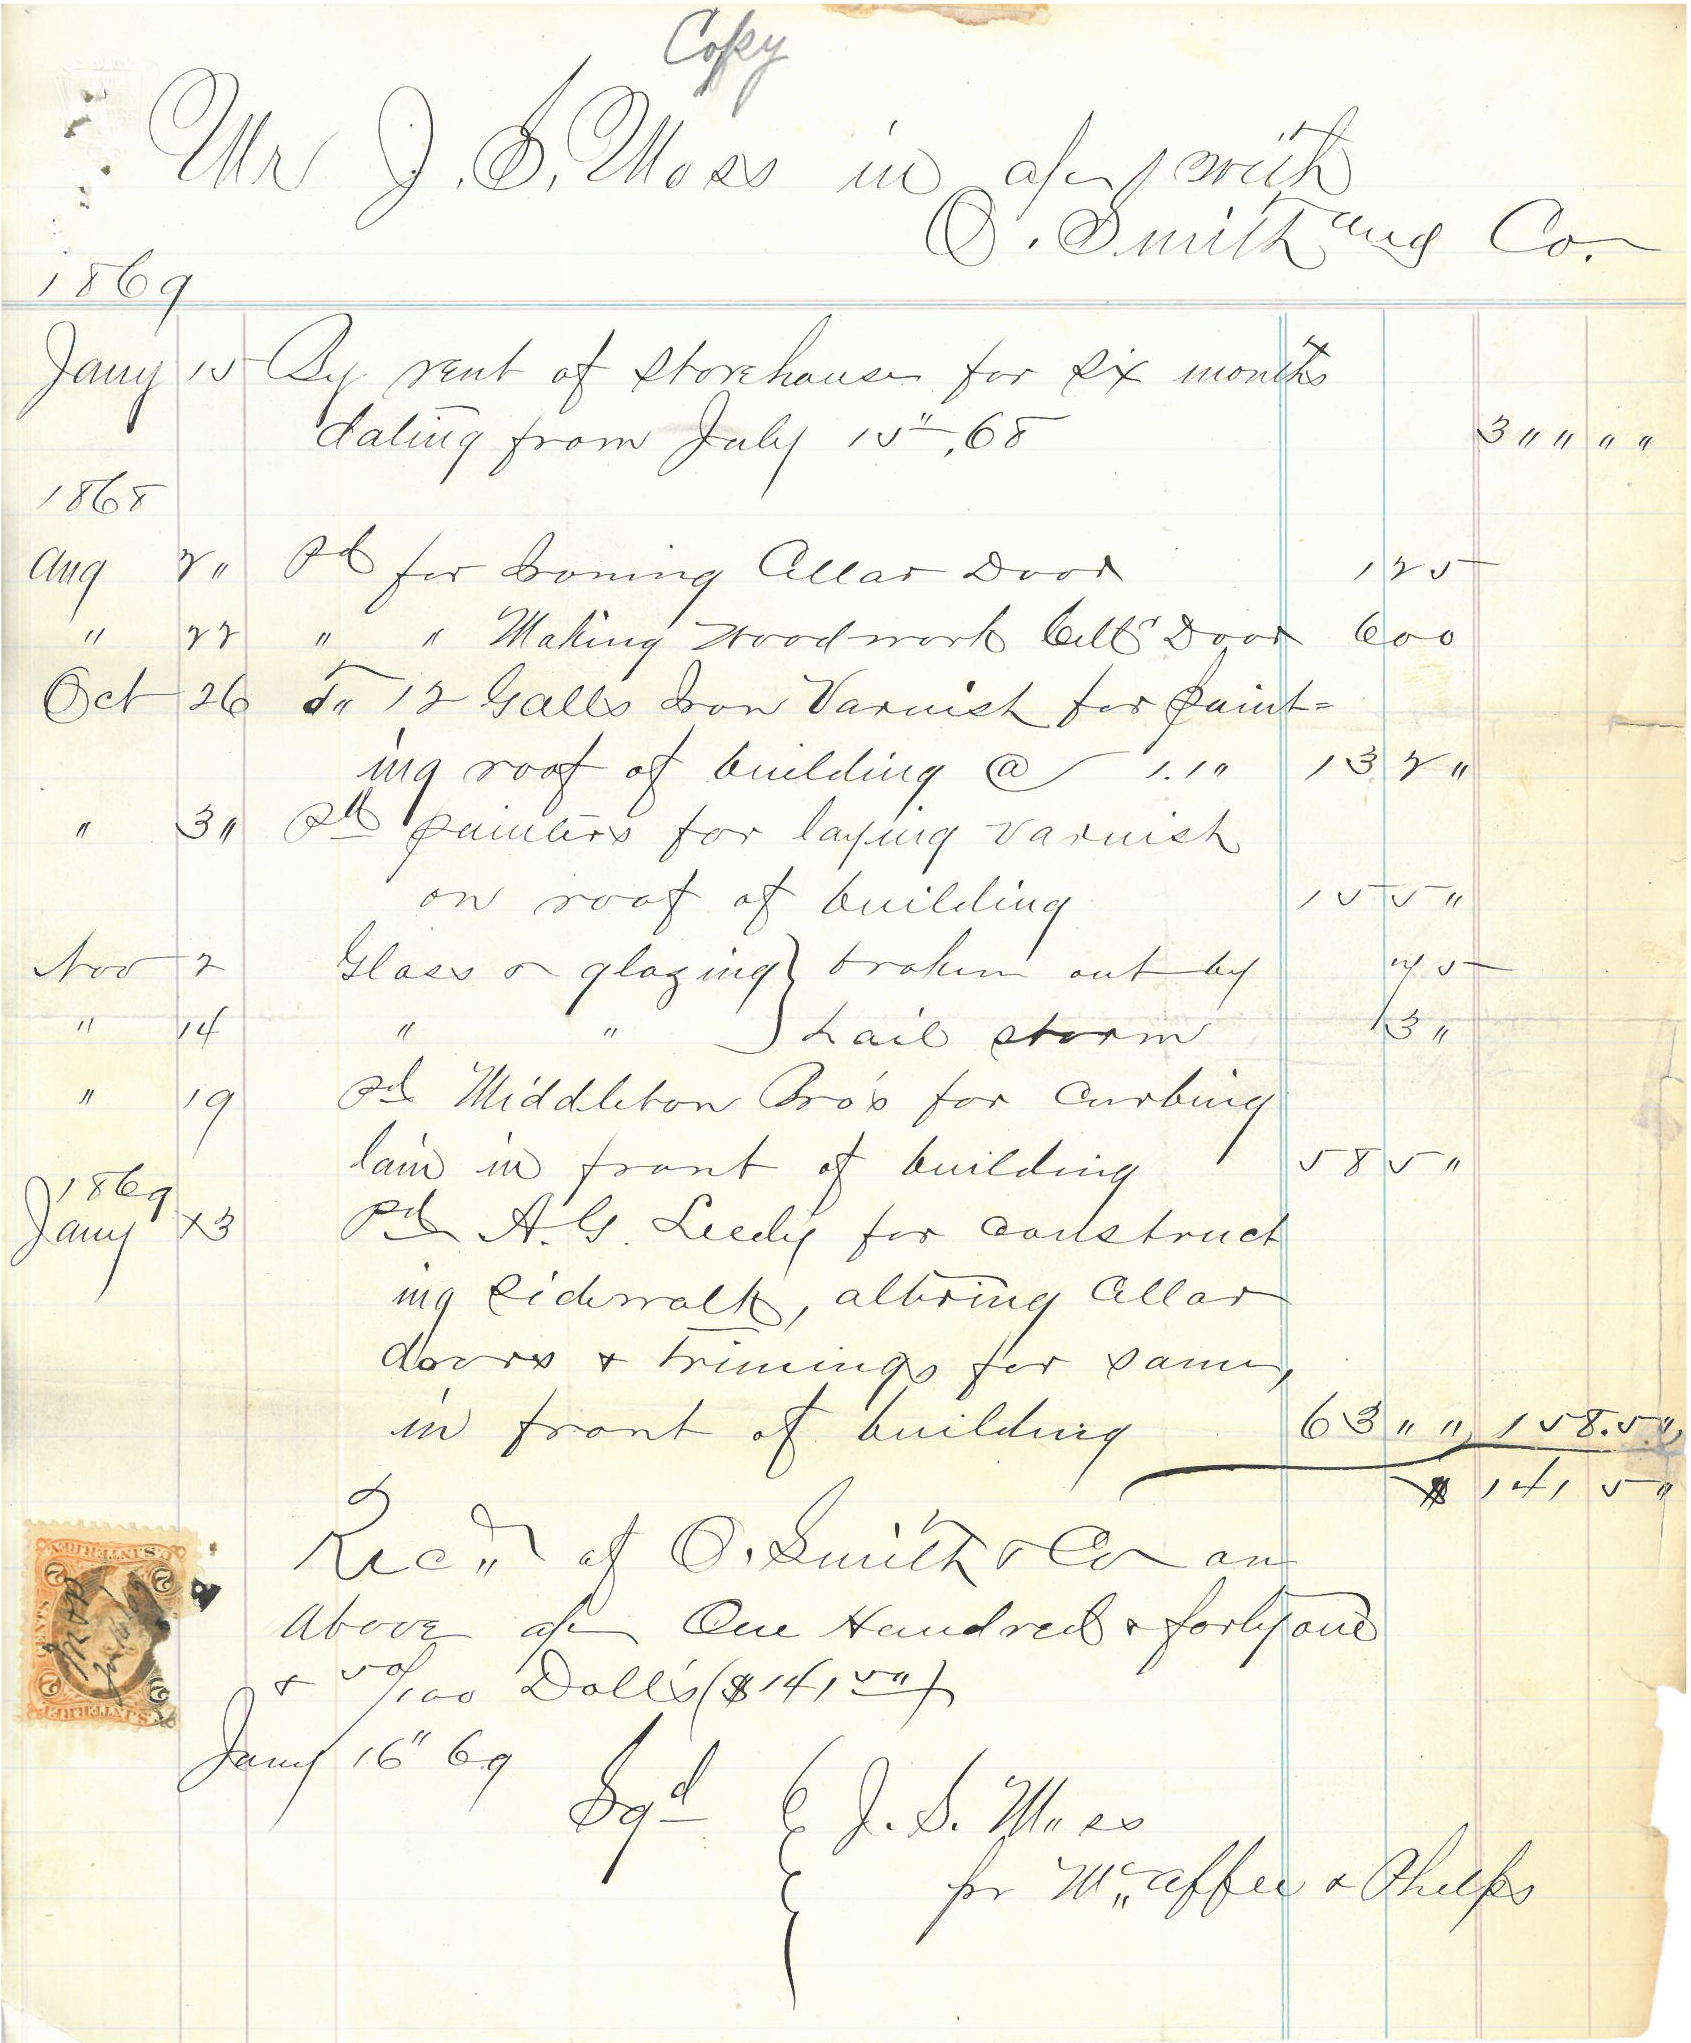 Copy
Mr J. S. Moss in a/c with
O. Smith and Co.
1869
Jany 15 By rent of storehouse for six months
dating from July 15", 68 3 " " " "
1868
Aug 2" Pd for Ironing Cellar Door 1 25
" 22 " " Making woodwork Cellr Door 6 00
Oct 26 To 12 Galls Iron Varnish for paint=
ing roof of building @ 1.1" 13 2"
" 3" Pd painters for laying varnish
on roof of building 15 5"
Nov 2 Glass & glazing } broken out by 75
" 14 " " } hail storm 3"
" 19 Pd Middleton Bro's for curbing
lain in front of building 58 5"
1869
Jany 13 Pd A. G. Leedy for construct
ing sidewalk, altering Cellar
doors & trimings for same,
in front of building 63 " " 158.5"
$ 141 5"
Rec"d of O. Smith & Co on
above a/c One Hundred & forty one
& 50/100 Dolls ($141 5")
Jany 16" 69
Sgd { J. S. Moss
for McAffee & Phelps
U.S. INTER. REV.
2 CENTS 2